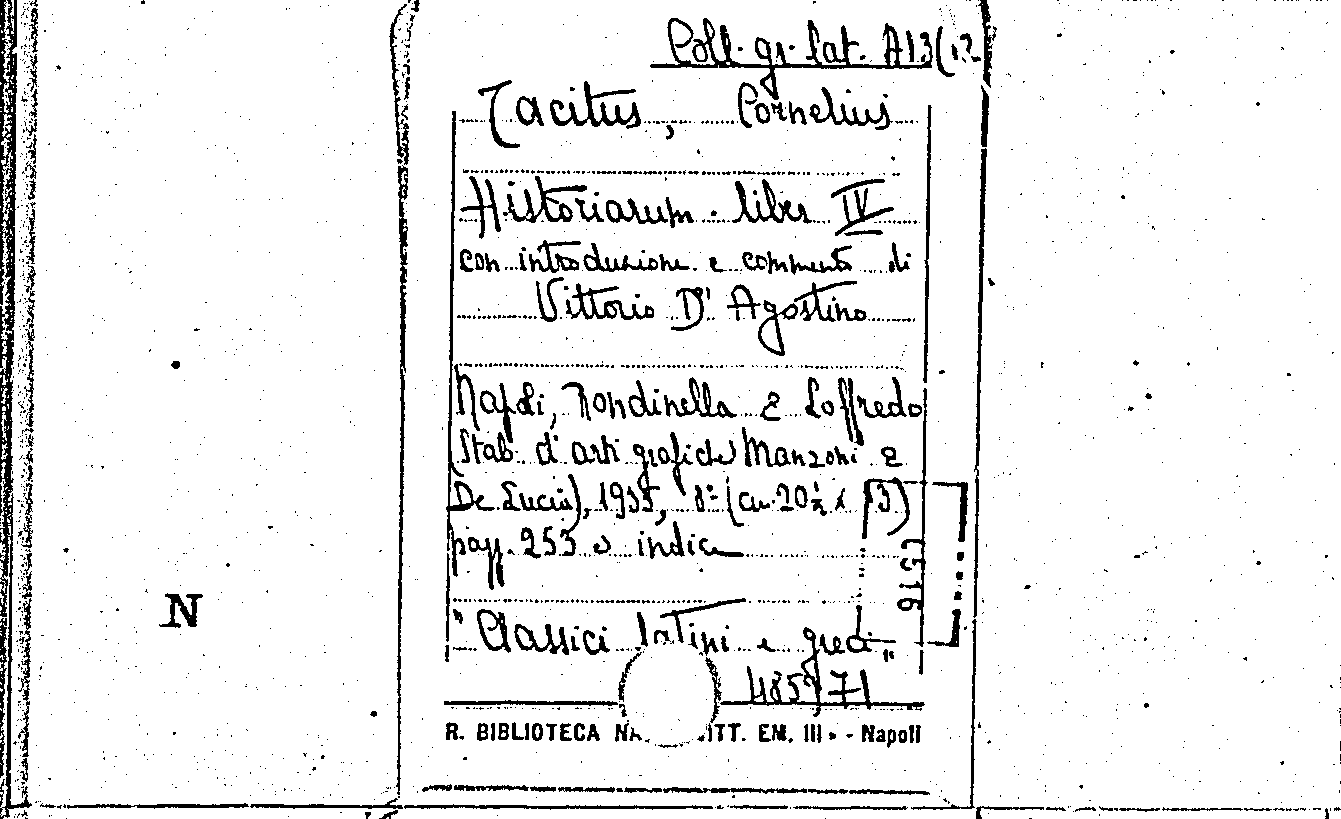 Coll. gr. lat. A13(12
Tacitus, Cornelius
Historiarum liber IV
con introduzione e commento di
Vittorio D'Agostino
Napoli, Rondinella e Loffredo
(Stab. d'arti grafiche Manzoni e
De Lucia), 1935, 8° (cm. 20½ x 13)
pagg. 253 e indice
"Classici latini e greci"
1516
N
R. BIBLIOTECA NA ITT. EM. III» - Napoli